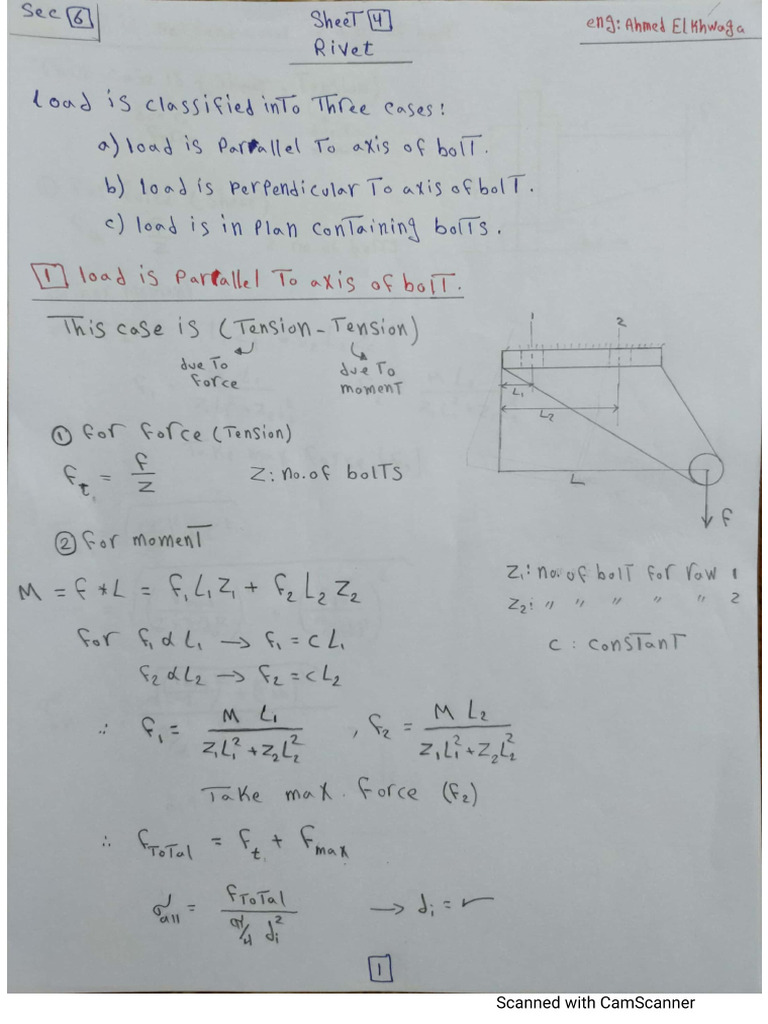 Sec 6
Sheet 4
Rivet
eng: Ahmed Elkhwaga
Load is classified into Three cases:
a) load is Parallel To axis of bolt.
b) load is perpendicular To axis of bolt.
c) load is in Plan containing bolts.
1 load is Parallel To axis of bolt.
This case is (Tension - Tension)
due To force
due To moment
① For Force (Tension)
F_t = F/Z   Z: no. of bolts
② For moment
M = F * L = F₁L₁Z₁ + F₂L₂Z₂
For F₁ α L₁ → F₁ = CL₁
F₂ α L₂ → F₂ = CL₂
∴ F₁ = M L₁ / (Z₁L₁² + Z₂L₂²) , F₂ = M L₂ / (Z₁L₁² + Z₂L₂²)
Take max. Force (F₂)
∴ F_Total = F_t + F_max
σ_all = F_Total / (π/4 d_i²) → d_i = ✓
1 2
L₁
L₂
L
F
Z₁: no. of bolt for row 1
Z₂: " " " " " 2
C : constant
1
Scanned with CamScanner